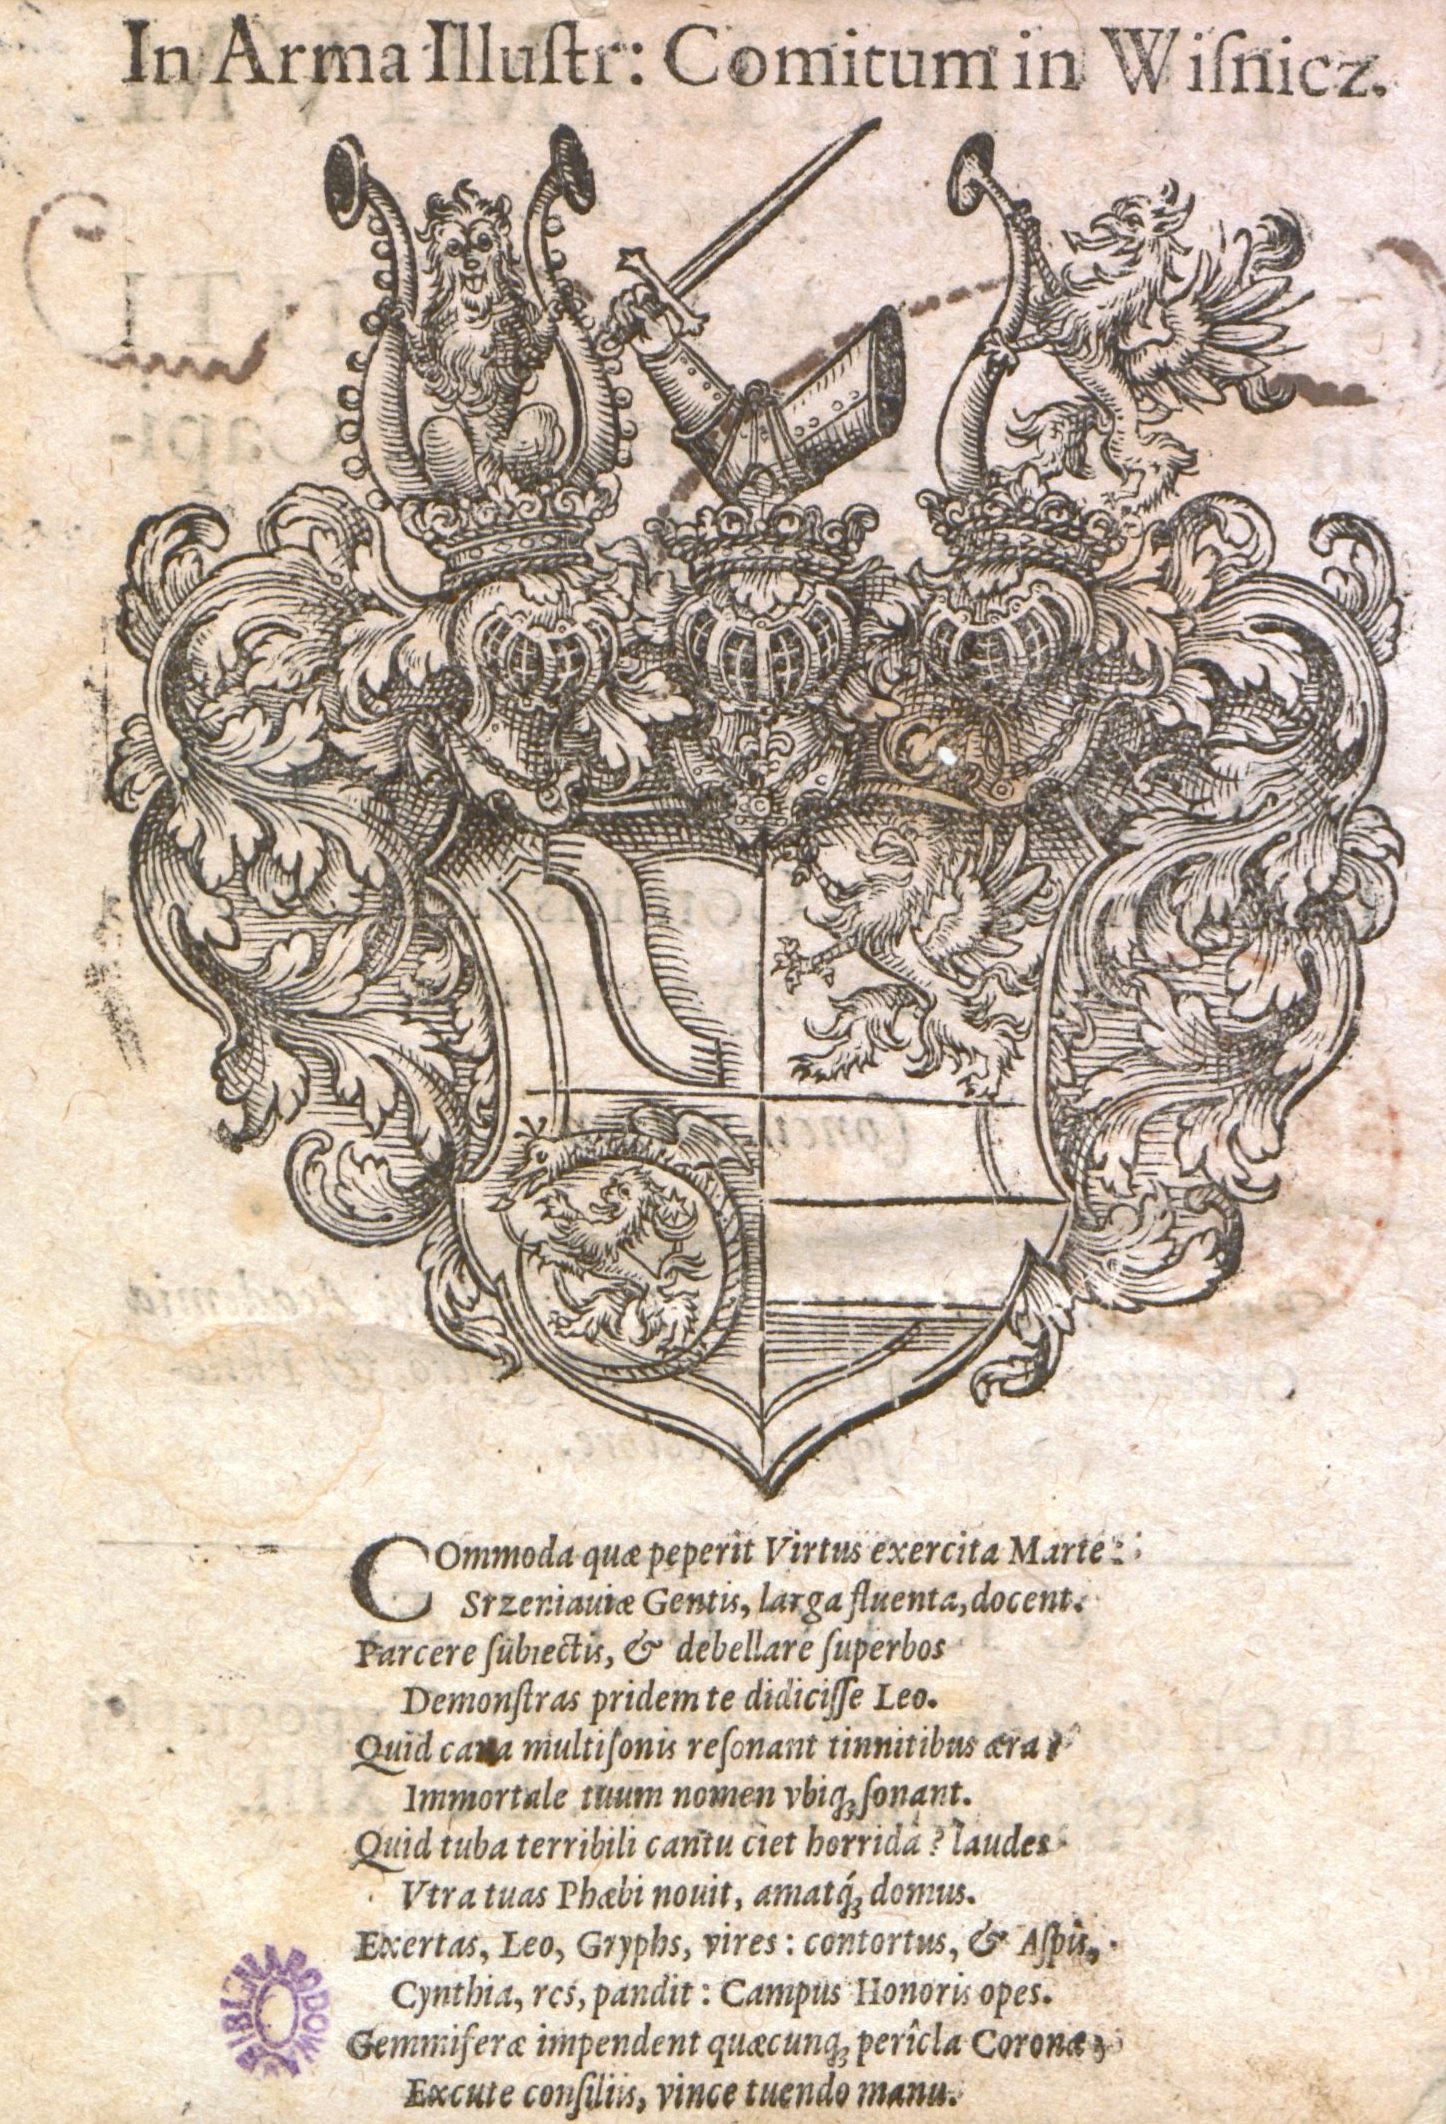 In Arma Illuſtr: Comitum in Wiſnicz.
COmmoda quæ peperit Virtus exercita Marte:
Srzeniauiæ Gentis, larga fluenta, docent.
Parcere ſubiectis, & debellare ſuperbos
Demonſtras pridem te didiciſſe Leo.
Quid caua multiſonis reſonant tinnitibus æra?
Immortale tuum nomen vbiq; ſonant.
Quid tuba terribili cantu ciet horrida? laudes
Vtra tuas Phæbi nouit, amatq́; domus.
Exertas, Leo, Gryphs, vires: contortus, & Aſpis,
Cynthia, res, pandit: Campus Honoris opes.
Gemmiferæ impendent quæcunq; perîcla Coronæ,
Excute conſiliis, vince tuendo manu.
BIBL. NARODOWA